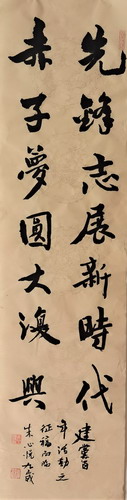 先鋒志展新時代
赤子夢圓大復興
建黨百
年活動之
征稿向向
朱心悅九歲